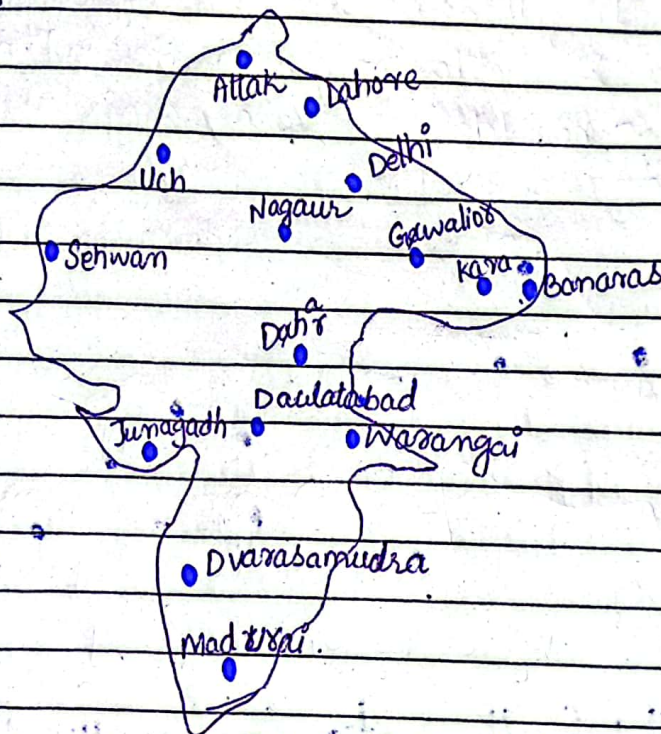 Attak
Lahore
Delhi
Uch
Nagaur
Gawalior
Sehwan
Kara
Banaras
Dahar
Daulatabad
Junagadh
Warangai
Dvarasamudra
Madurai.